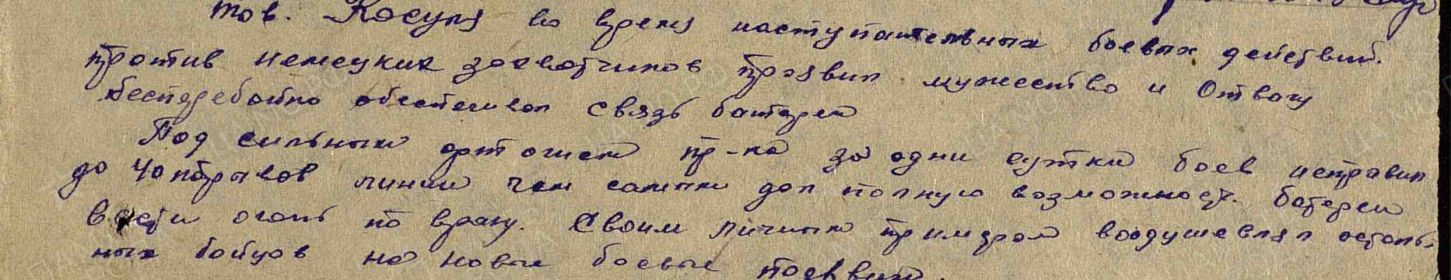 тов. Косуля во время наступательных боевых действий
против немецких захватчиков проявил мужество и отвагу
бесперебойно обеспечивал связь батареи
Под сильным арт огнем пр-ка за одни сутки боев исправил
до 40 порывов линии чем самым дал полную возможность батареи
вести огонь по врагу. Своим личным примером воодушевлял осталь-
ных бойцов на новые боевые подвиги.